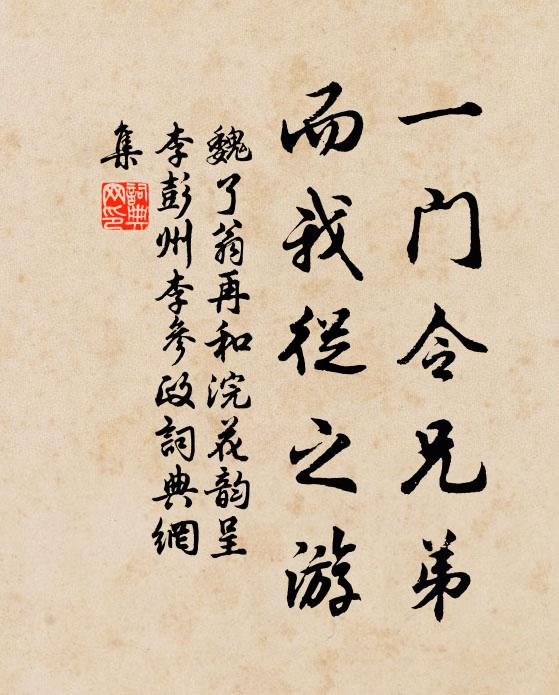 一门令兄弟
而我從之游
魏了翁再和浣花韵呈
李彭州李參政詞典網
集
詞典
网印